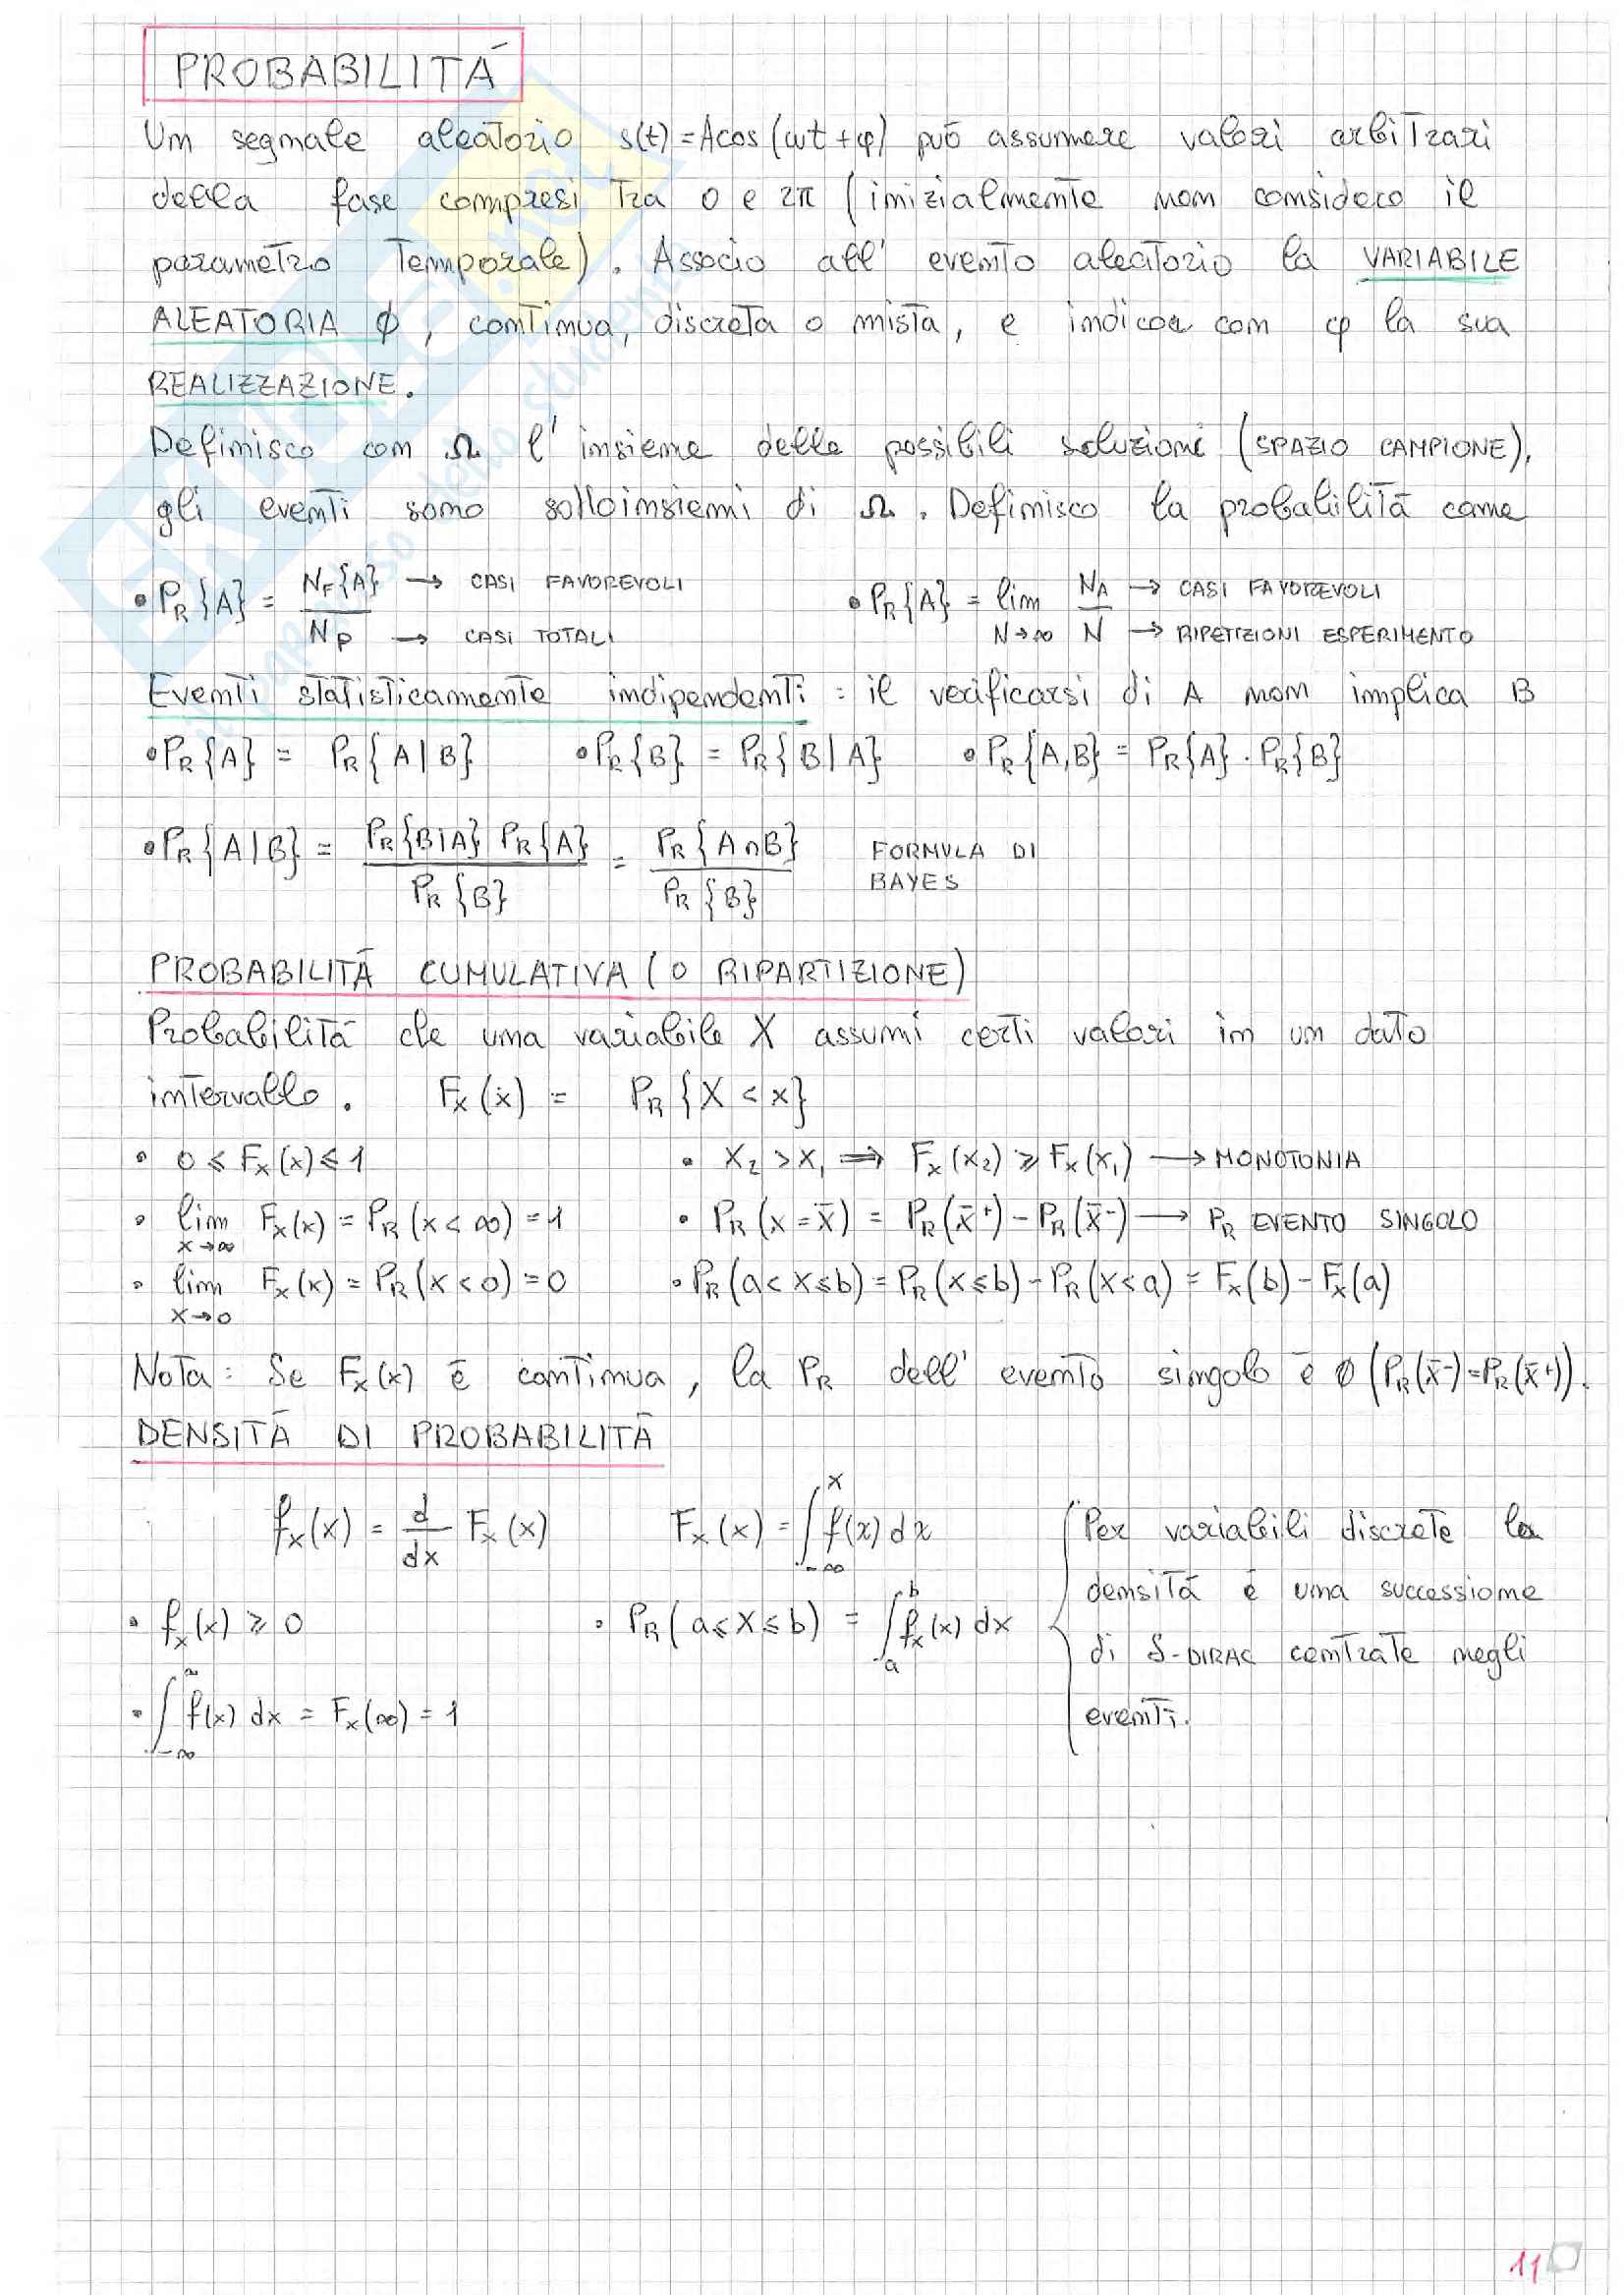 PROBABILITÁ
Un segnale aleatorio s(t) = A cos (ωt + φ) può assumere valori arbitrari
della fase compresi tra 0 e 2π (inizialmente non considero il
parametro temporale). Associo all' evento aleatorio la VARIABILE
ALEATORIA ϕ, continua, discreta o mista, e indico con φ la sua
REALIZZAZIONE.
Definisco con Ω l' insieme delle possibili soluzioni (SPAZIO CAMPIONE),
gli eventi sono sottoinsiemi di Ω. Definisco la probabilità come
• PR{A} = NF{A} / NP → CASI FAVOREVOLI → CASI TOTALI • PR{A} = lim N→∞ NA / N → CASI FAVOREVOLI → RIPETIZIONI ESPERIMENTO
Eventi statisticamente indipendenti: il verificarsi di A non implica B
• PR{A} = PR{A|B} • PR{B} = PR{B|A} • PR{A,B} = PR{A} · PR{B}
• PR{A|B} = PR{B|A} PR{A} / PR{B} = PR{A∩B} / PR{B} FORMULA DI BAYES
PROBABILITÁ CUMULATIVA (O RIPARTIZIONE)
Probabilità che una variabile X assumi certi valori in un dato
intervallo. Fx(x) = PR{X < x}
• 0 ≤ Fx(x) ≤ 1 • x2 > x1 ⇒ Fx(x2) ≥ Fx(x1) → MONOTONIA
• lim x→∞ Fx(x) = PR(x < ∞) = 1 • PR(x = x̄) = PR(x̄⁺) - PR(x̄⁻) → PR EVENTO SINGOLO
• lim x→0 Fx(x) = PR(x < 0) = 0 • PR(a < x ≤ b) = PR(x ≤ b) - PR(x ≤ a) = Fx(b) - Fx(a)
Nota: Se Fx(x) è continua, la PR dell' evento singolo è ∅ (PR(x̄⁻) = PR(x̄⁺)).
DENSITÁ DI PROBABILITÁ
fx(x) = d/dx Fx(x) Fx(x) = ∫_{-∞}^{x} f(x) dx
• fx(x) ≥ 0 • PR(a ≤ X ≤ b) = ∫_{a}^{b} fx(x) dx
• ∫_{-∞}^{∞} f(x) dx = Fx(∞) = 1
Per variabili discrete la
densità è una successione
di δ-DIRAC centrate negli
eventi.
11